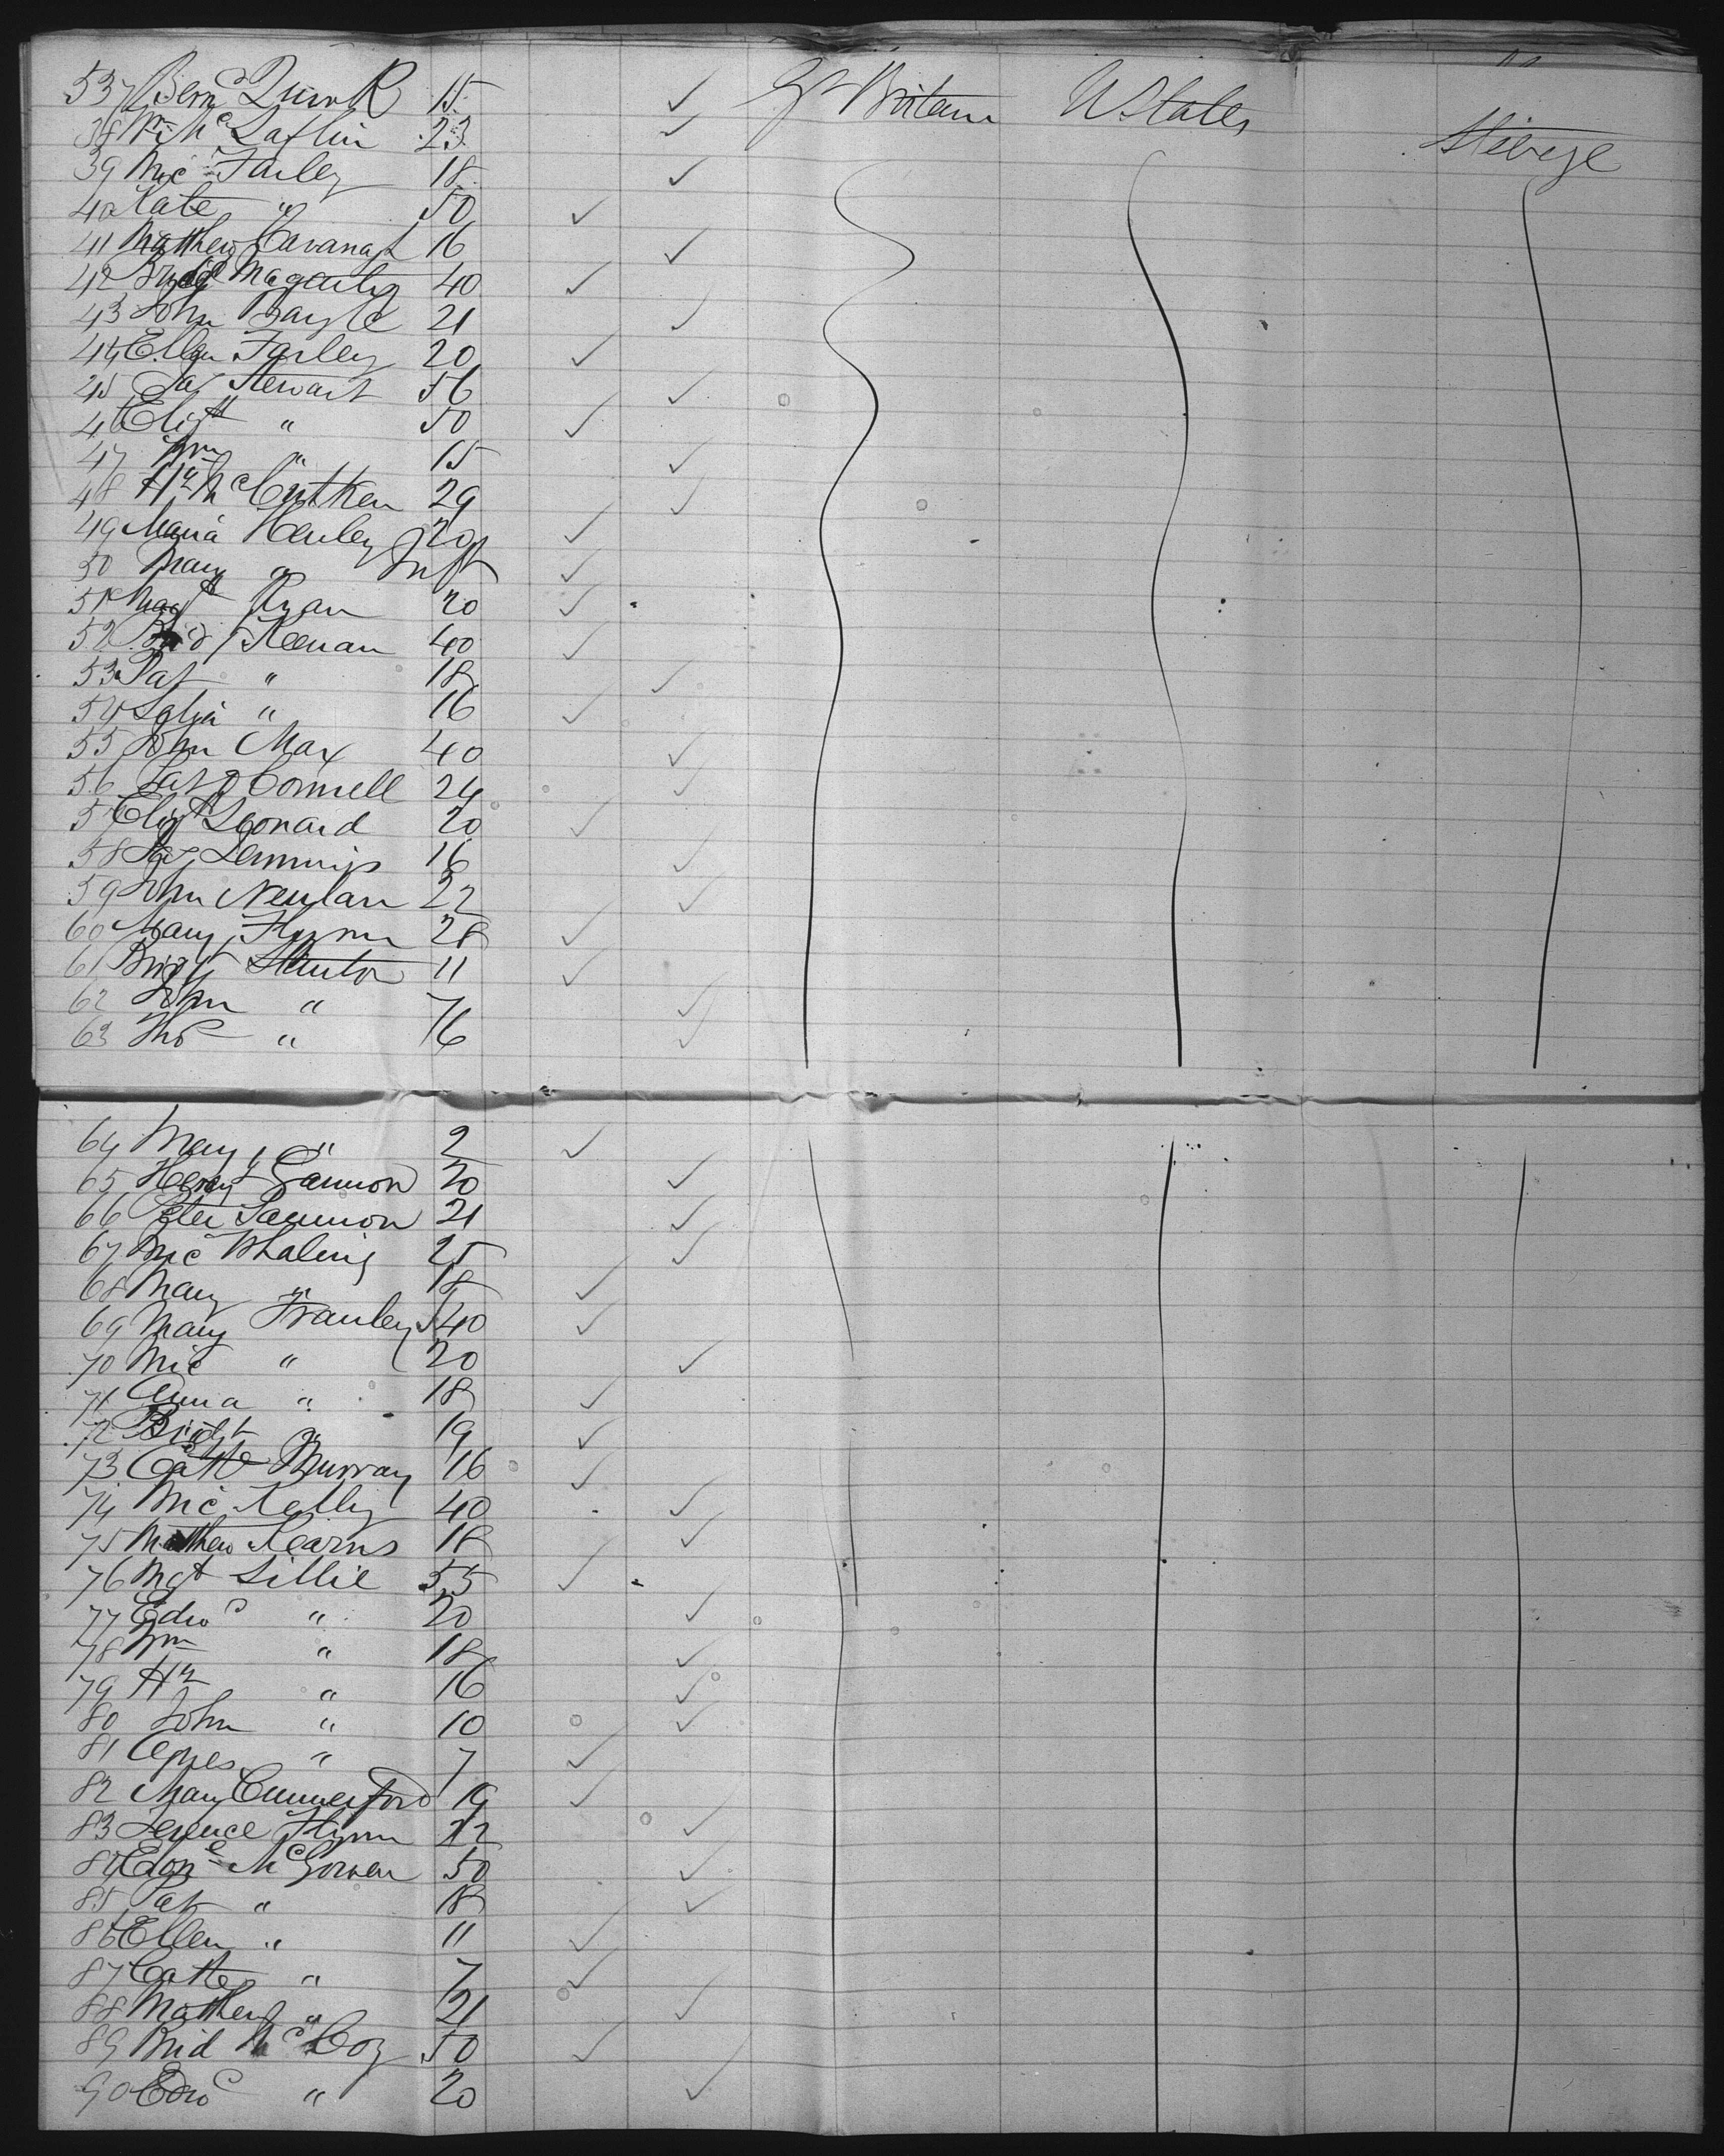 537 Bern<sup>d</sup> Quirk 15 ✓ G<sup>t</sup> Britain U States Steerage
38 McLaflin 23 ✓
39 Mic Farley 18 ✓
40 Kate " 50 ✓
41 Mathew Cavanagh 16 ✓
42 Magarty 40 ✓
43 John Bayle 21 ✓
44 Ellen Farley 20 ✓
45 Ja<sup>s</sup> Stewart 56 ✓
46 Eliz<sup>th</sup> " 50 ✓
47 Wm " 15 ✓
48 Hy 29 ✓
49 Maria Henley 20 ✓
50 Mary " Inft ✓
51 Mag<sup>t</sup> Ryan 20 ✓
52 Brid Keenan 40 ✓
53 Pat " 18 ✓
54 " 16 ✓
55 John Max 40 ✓
56 Pat O Connell 24 ✓
57 Eliz<sup>th</sup> Leonard 20 ✓
58 Jas 16 ✓
59 John Newlan 22 ✓
60 Mary Flynn 28 ✓
61 Bridgt Stanton 11 ✓
62 John " 7 ✓
63 Tho<sup>s</sup> " 6 ✓
64 Mary " 2 ✓
65 Henry Gannon 20 ✓
66 Peter Sammon 21 ✓
67 Mic Whaling 25 ✓
68 Mary " 18 ✓
69 Mary Franley 40 ✓
70 Mic " 20 ✓
71 Anna " 18 ✓
72 Bridgt " 19 ✓
73 Cathe Murray 16 ✓
74 Mic Kelly 40 ✓
75 Mathew Kearns 18 ✓
76 Mgt Lillie 55 ✓
77 Edw<sup>d</sup> " 20 ✓
78 Wm " 18 ✓
79 Hy " 16 ✓
80 John " 10 ✓
81 Agnes " 7 ✓
82 Mary Cummerford 19 ✓
83 Terence Flynn 22 ✓
84 McGowen 50 ✓
85 Pat " 18 ✓
86 Ellen " 11 ✓
87 Cathe " 7 ✓
88 Mathew " 21 ✓
89 Brid McCoy 50 ✓
90 Edw<sup>d</sup> " 20 ✓